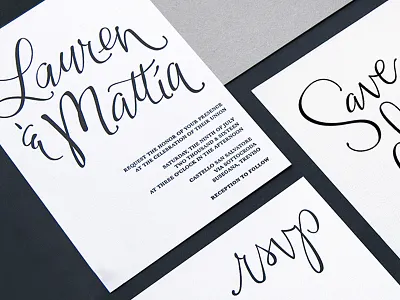 Lauren
& Mattia
REQUEST THE HONOR OF YOUR PRESENCE
AT THE CELEBRATION OF THEIR UNION
SATURDAY, THE NINTH OF JULY
TWO THOUSAND & SIXTEEN
AT THREE O'CLOCK IN THE AFTERNOON
CASTELLO SAN SALVATORE
VIA SOTTOCRODA
SUSEGANA, TREVISO
RECEPTION TO FOLLOW
Save
rsvp